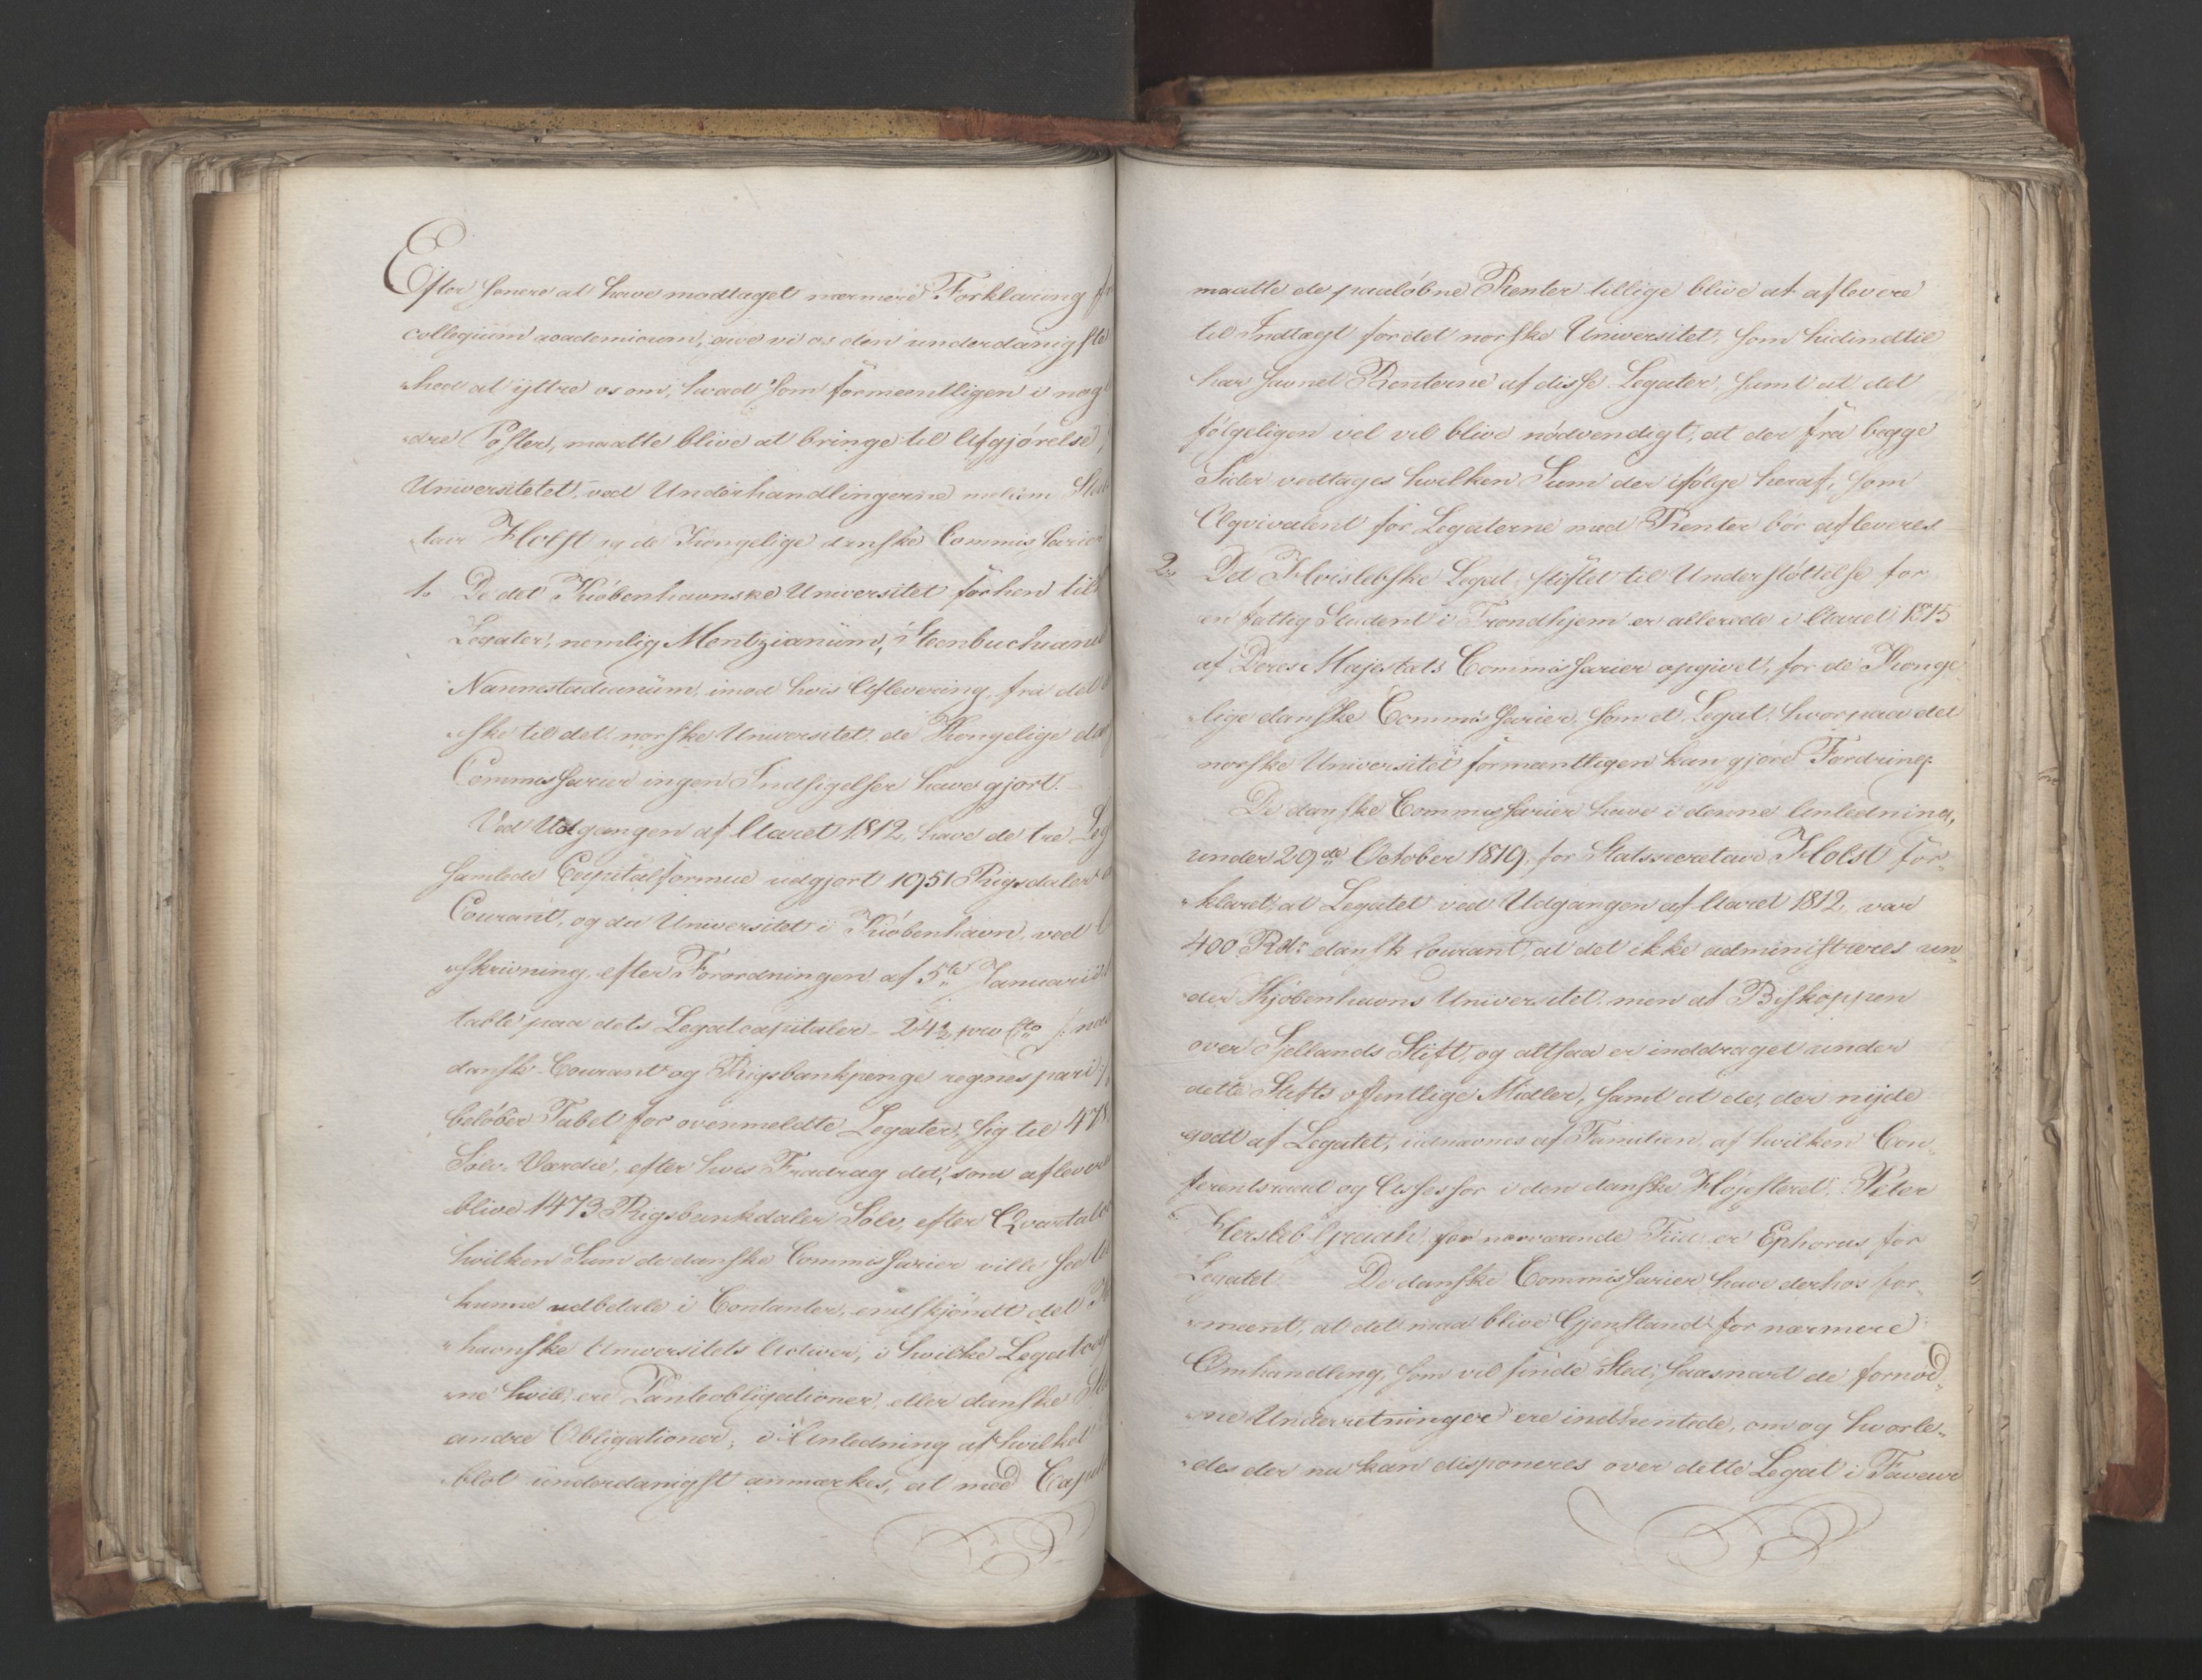 Efter senere at have modtaget nærmere Forklaring
collegium academicum, give vi os den underdanigste
„hed at ÿttre os om, hvad som formeentligen i nog
„dre Poster, maatte blive at bringe til Afgjørelse,
Universitetet, ved Underhandlingerne mellem Stats
„tair Holst og de Kongelige danske Commissarier
1. De det Kiøbenhavnske Universitet forhen
Legater, nemlig Mentzianum, Steenbuchian
Nannestadianum, imod hvis Aflevering, fra det
„ske til det norske Universitet, de Kongelige
Commissarier ingen Indsigelser have gjort.
Ved Udgangen af Aaret 1812, have de tre Leg
samlede Capitalformue udgjort 1951 Rigsdaler
Courant, og da Universitet i Kiøbenhavn, ved
„skrivning, efter Forordningen af 5te Januarii
tabte paa dets Legatcapitaler 24½ pro Cto
dansk Courant og Rigsbankpenge regnes pari
beløber Tabet for ovenmeldte Legater, sig til 478
Sølv Værdie, efter hvis Fradrag det, som aflever
blive 1473 Rigsbankdaler Sølv, efter Qvartal
hvilken Sum de danske Commissarier ville see
kunne udbetale i Contanter, endskjøndt det
„havnske Universitets Activer, i hvilke Legater
„ne hvile, ere Panteobligationer, eller danske
andre Obligationer, i Anledning af hvilket
blot underdanigst anmærkes, at med Capit
maatte de paaløbne Renter tillige blive at aflevere
til Indtægt for det norske Universitet, som hidindtil
har savnet Renterne af disse Legater, samt at det
følgeligen vel vil blive nødvendigt, at der fra begge
Sider vedtages hvilken Sum der ifølge heraf, som
Æqvivalent for Legaterne med Renter bør afleveres
2. Det Herslebske Legat, stiftet til Understøttelse for
en fattig Student i Trondhjem er allerede i Aaret 1815
af Deres Majestæts Commissarier opgivet, for de Konge„
„lige danske Commissarier, som et Legat, hvorpaa det
norske Universitet formeentligen kan gjøre Fordring.
De danske Commissarier have i denne Anledning,
under 29de October 1819, for Statssecretair Holst for„
„klaret, at Legatet ved Udgangen af Aaret 1812, var
400 Rdr dansk Courant, at det ikke administreres un„
„der Kjøbenhavns Universitet, men af Biskoppen
over Sjellands Stift, og altsaa er inddraget under
dette Stifts offentlige Midler, samt at de, der nyde
godt af Legatet, udnævnes af Familien, af hvilken Con„
ferentsraad og Assessor i den danske Høiesteret, Peter
Hersleb Graah for nærværende Tiid er Ephorus for
Legatet. De danske Commissarier have derhos for„
„meent, at det maa blive Gjenstand for nærmere
Omhandling, som vil finde Sted, saasnart de fornød„
„ne Underretninger ere indhentede, om og hvorle„
„des der nu kan disponeres over dette Legat i Faveur